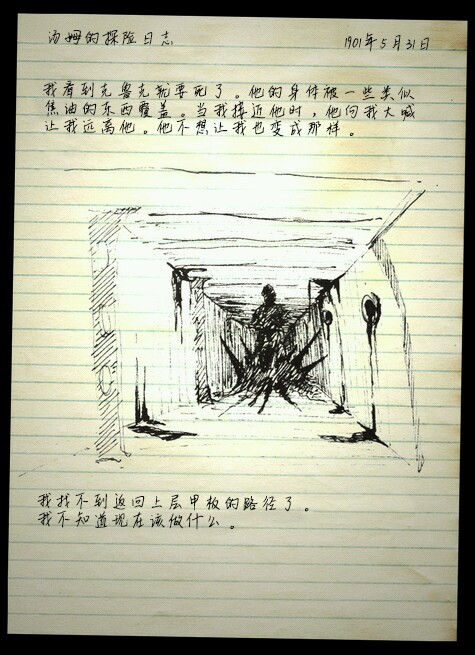 汤姆的探险日志 1901年5月31日
我看到克鲁克就要死了。他的身体被一些类似
焦油的东西覆盖。当我接近他时，他向我大喊
让我远离他。他不想让我也变成那样。
我找不到返回上层甲板的路径了。
我不知道现在该做什么。